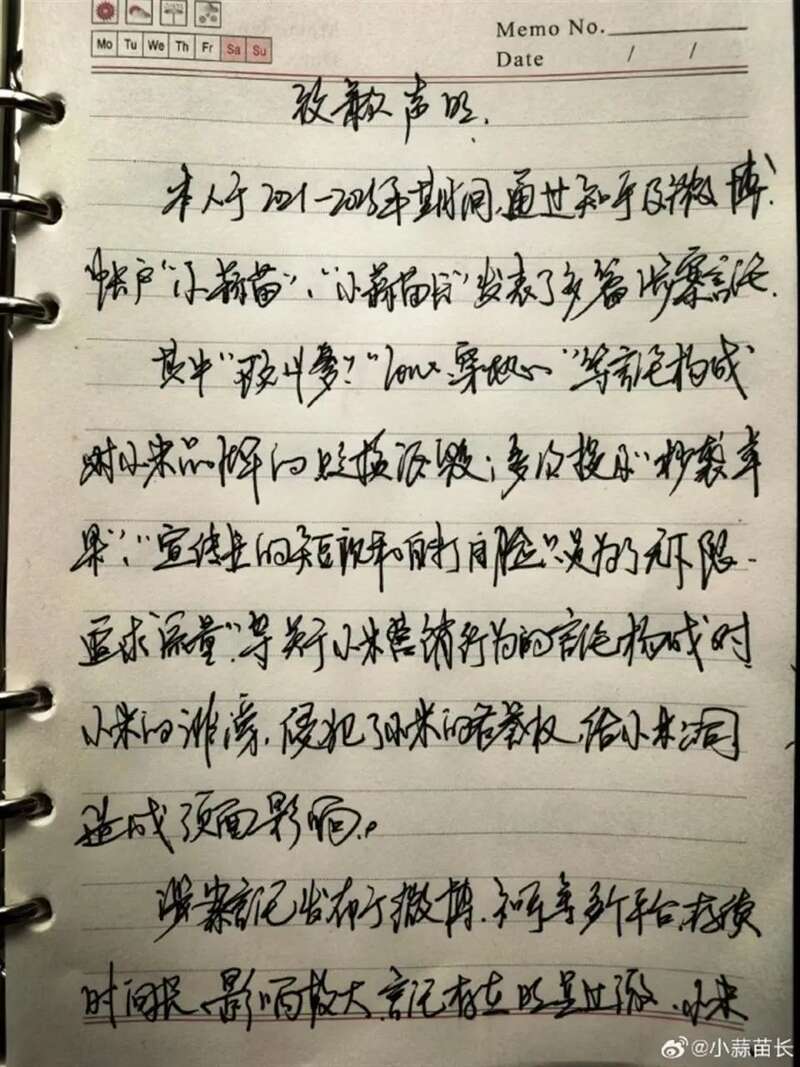 Mo Tu We Th Fr Sa Su
Memo No.
Date / /
致歉声明.
本人于2021-2025年期间,通过知乎及微博
帐户"小蒜苗"、"小蒜苗长"发表了多篇涉案言论.
其中" "等言论构成
对小米品牌的贬损诋毁;多次提及"抄袭苹
果"、"宣传上的短视和自打自脸只是为了无下限
追求流量"等关于小米营销行为的言论构成对
小米的诽谤,侵犯了小米的名誉权,给小米公司
造成负面影响。
涉案言论发布于微博、知乎等多个平台,存续
时间长、影响较大,言论存在明显过激、小米
@小蒜苗长